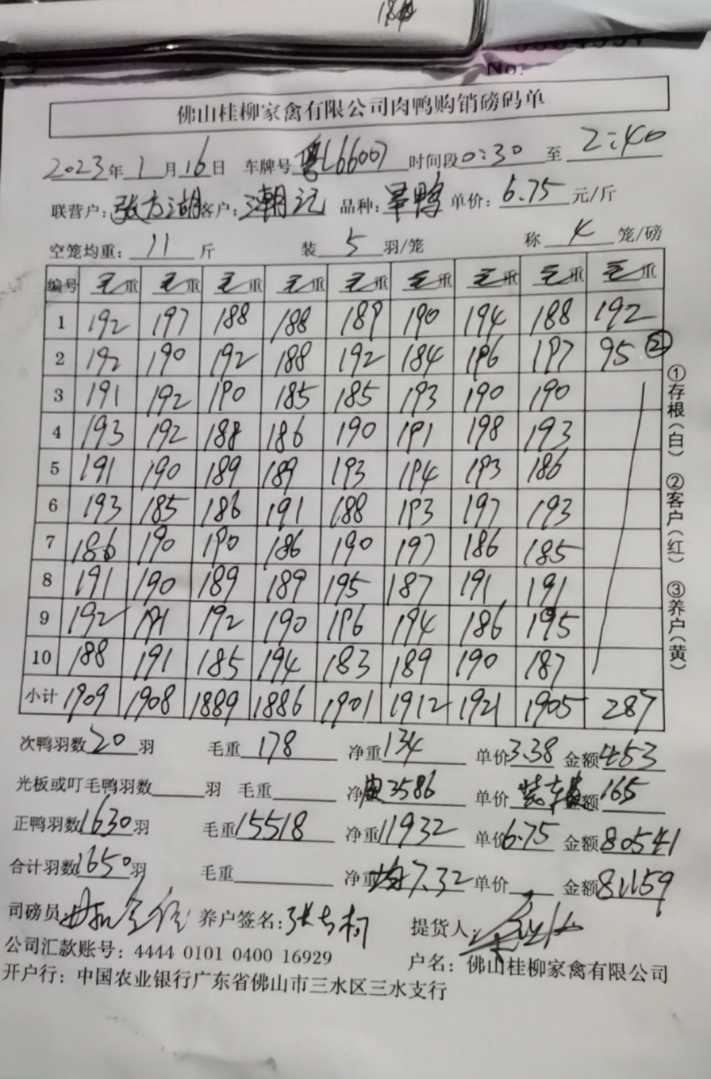 184
No:
佛山桂柳家禽有限公司肉鸭购销磅码单
2023年1月16日 车牌号 粤L66007 时间段0:30 至 2:40
联营户: 客户:潮记 品种: 单价:6.75元/斤
空笼均重:11斤 装5羽/笼 称4笼/磅
编号 毛重 毛重 毛重 毛重 毛重 毛重 毛重 毛重 毛重
1 192 197 188 188 189 190 194 188 192
2 192 190 192 188 192 184 196 197 95 ②
3 191 192 190 185 185 193 190 190
4 193 192 188 186 190 191 198 193
5 191 190 189 189 193 194 193 186
6 193 185 186 191 188 193 197 193
7 186 190 190 186 190 197 186 185
8 191 190 189 189 195 187 191 191
9 192 191 192 190 196 194 186 195
10 188 191 185 194 183 189 190 187
小计 1909 1908 1889 1886 1901 1912 1921 1905 287
①存根(白) ②客户(红) ③养户(黄)
次鸭羽数20羽 毛重178 净重134 单价3.38 金额453
光板或叮毛鸭羽数 羽 毛重 净 3586 单价 额165
正鸭羽数1630羽 毛重15518 净重11932 单价6.75 金额80541
合计羽数1650羽 毛重 净重均7.32 单价 金额81159
司磅员 养户签名: 提货人:
公司汇款账号: 4444 0101 0400 16929 户名: 佛山桂柳家禽有限公司
开户行: 中国农业银行广东省佛山市三水区三水支行